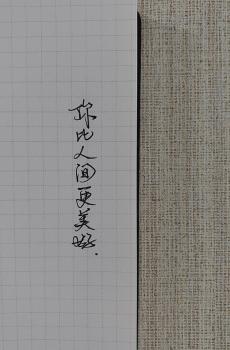 你比人间更美好.